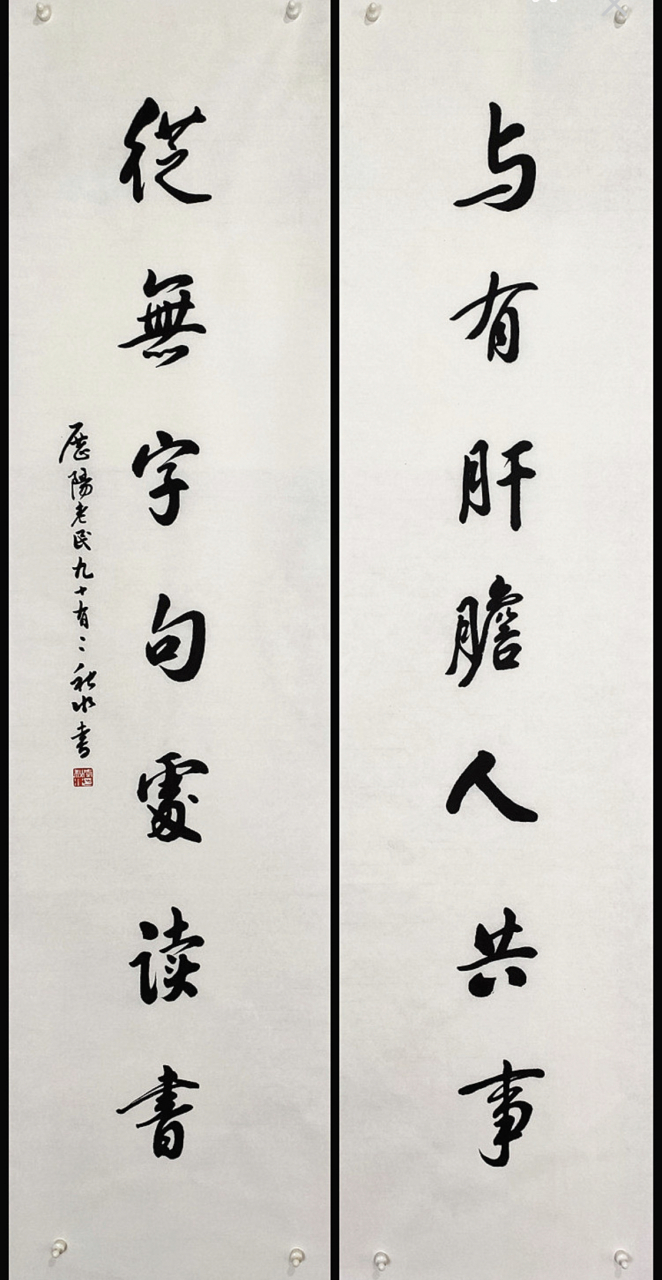 与有肝膽人共事
從無字句處读書
歷陽老民九十有二秋水書